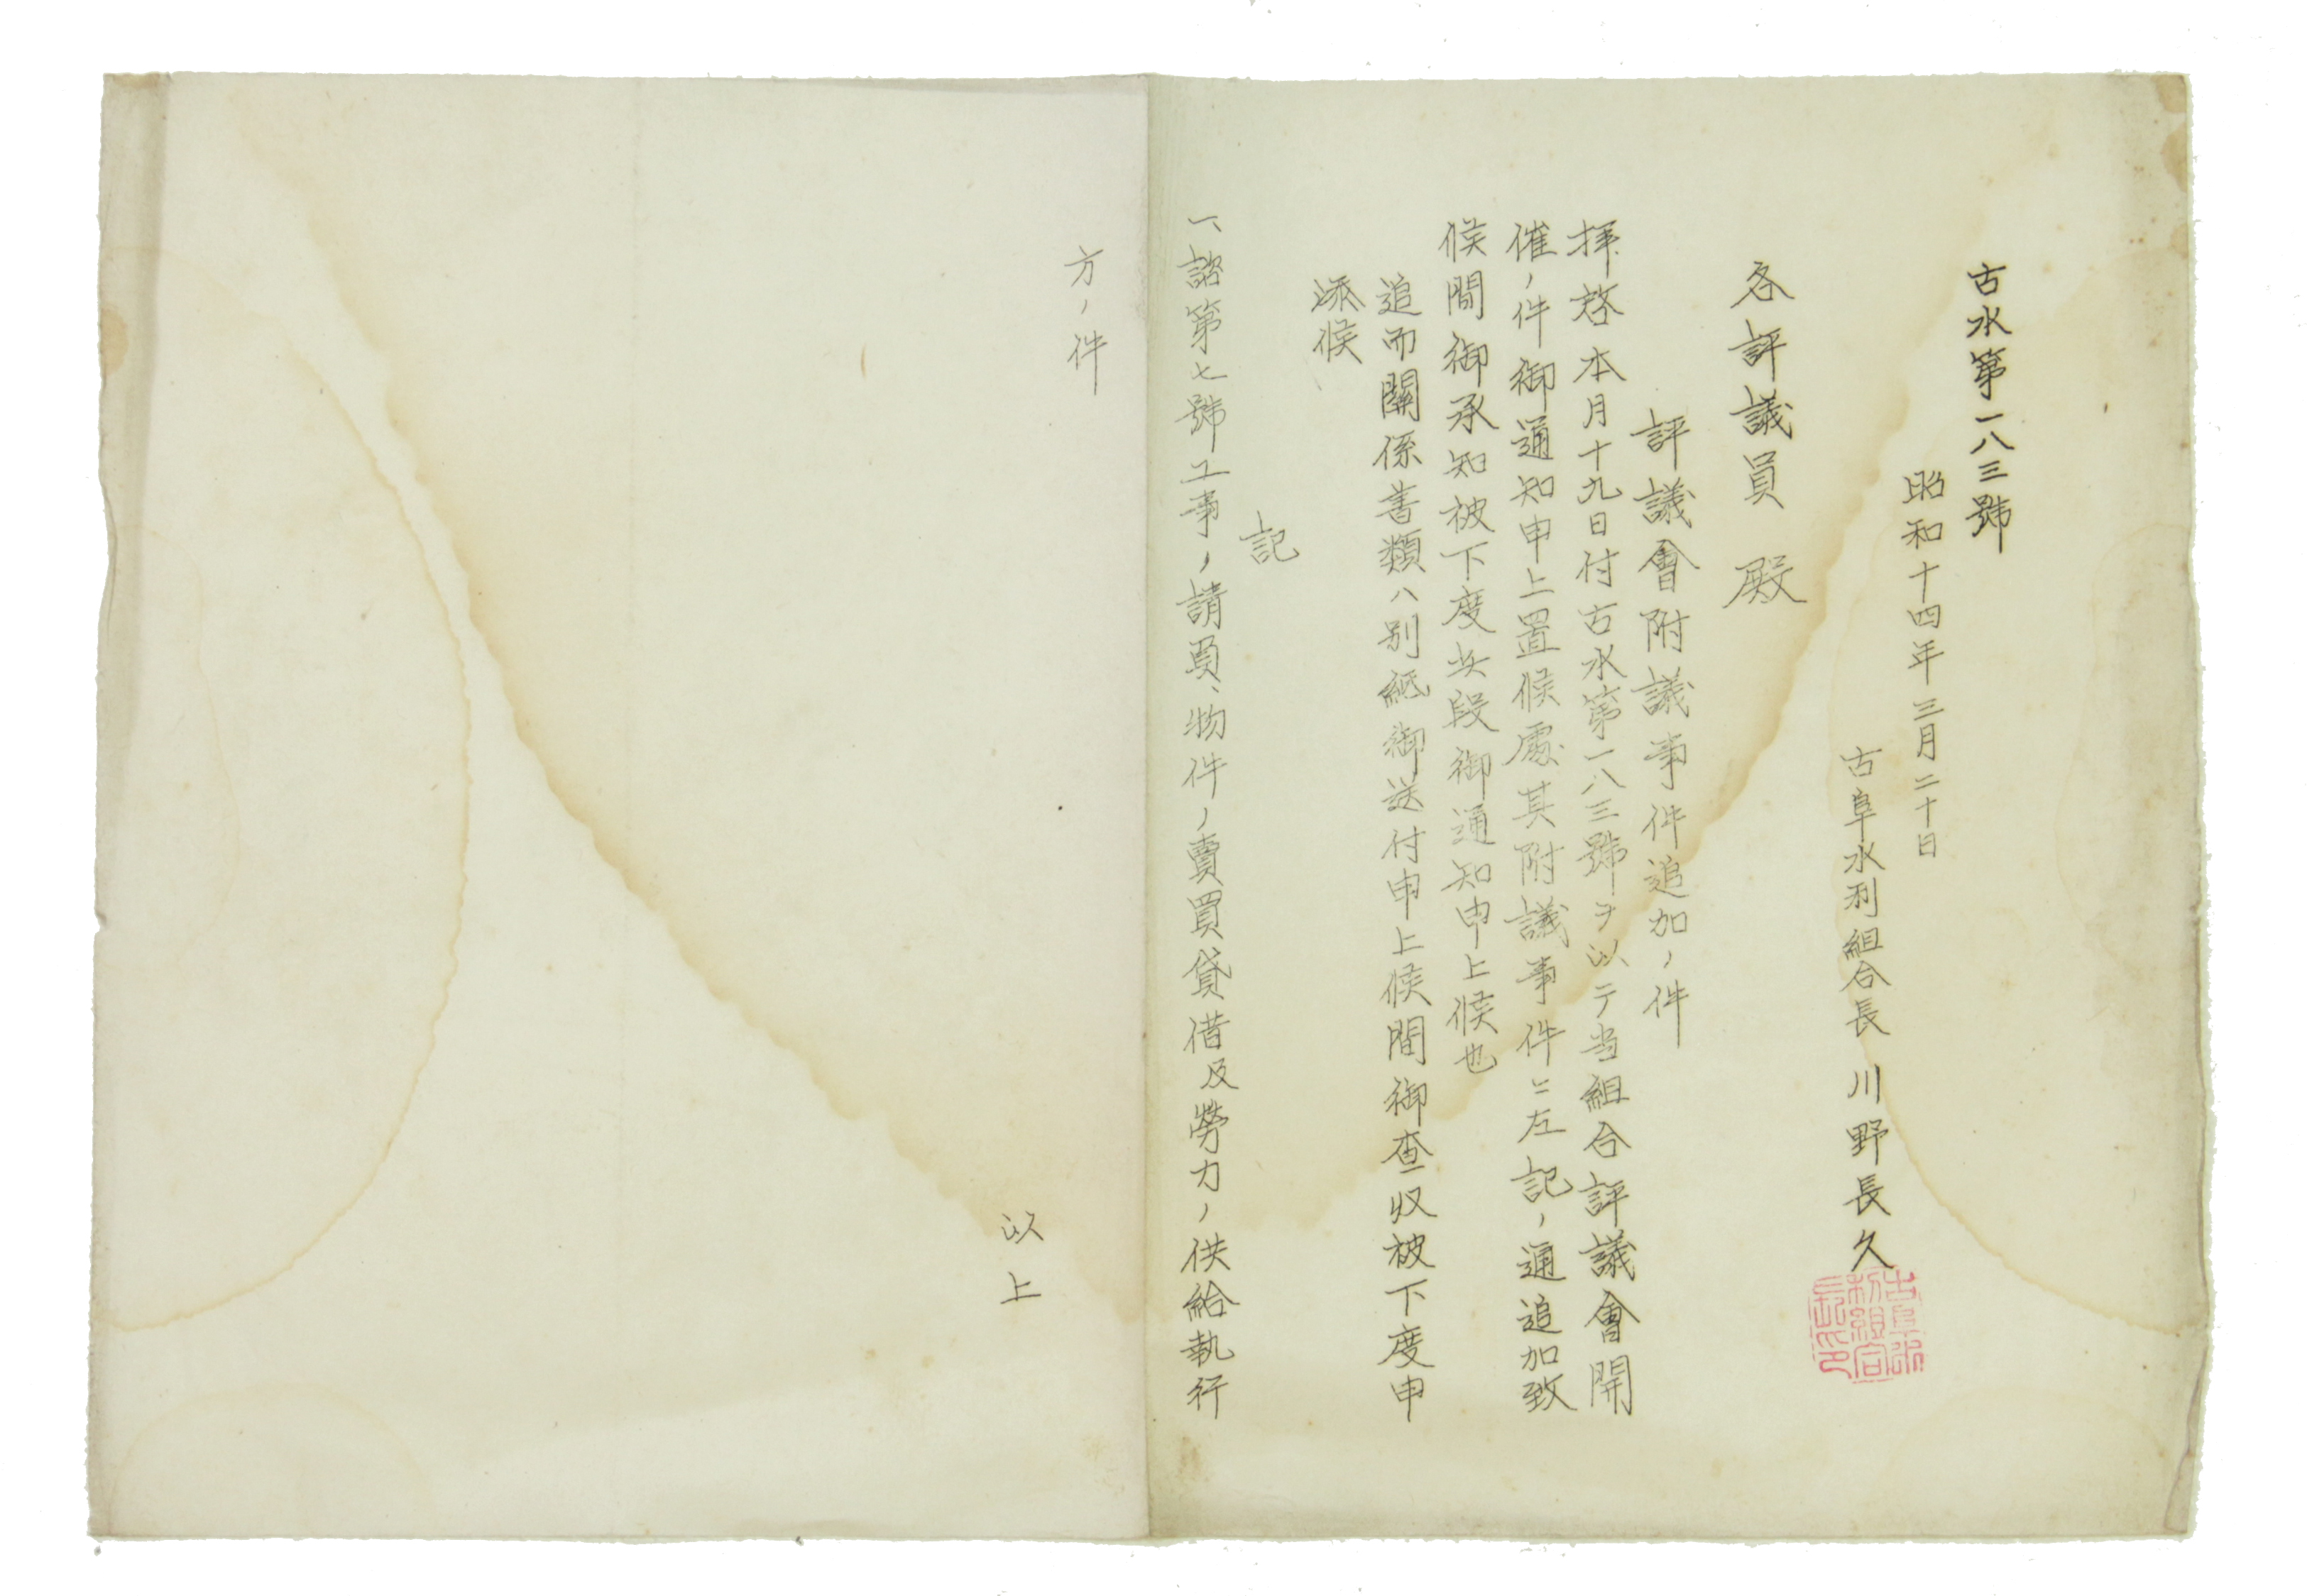 古水第一八三號
昭和十四年三月二十日
古阜水利組合長 川野長久
古阜水利組合長印
各評議員 殿
評議會附議事件追加ノ件
拝啓本月十九日付古水第一八三號ヲ以テ当組合評議會開
催ノ件御通知申上置候處其附議事件ニ左記ノ通追加致
候間御承知被下度此段御通知申上候也
追而關係書類ハ別紙御送付申上候間御査収被下度申
添候
記
一、諮第七號工事ノ請負、物件ノ賣買貸借及勞力ノ供給執行
方ノ件
以上